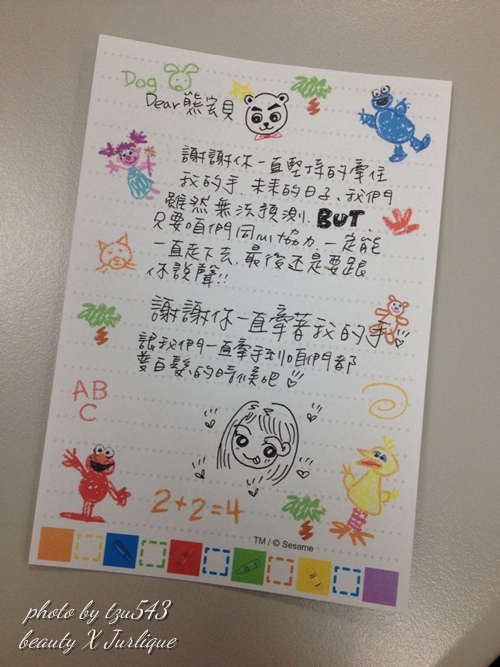 Dog
Dear 熊宝貝
謝謝你一直堅持的牽住
我的手.未來的日子、我們
雖然無法預測.BUT.
只要咱們同心協力.一定能
一直走下去.最後還是要跟
你說聲!!
謝謝你一直牽著我的手
讓我們一直牽手到咱們都
要白髮的時候吧
AB
C
2+2=4
TM / © Sesame
photo by tzu543
beauty X Jurlique